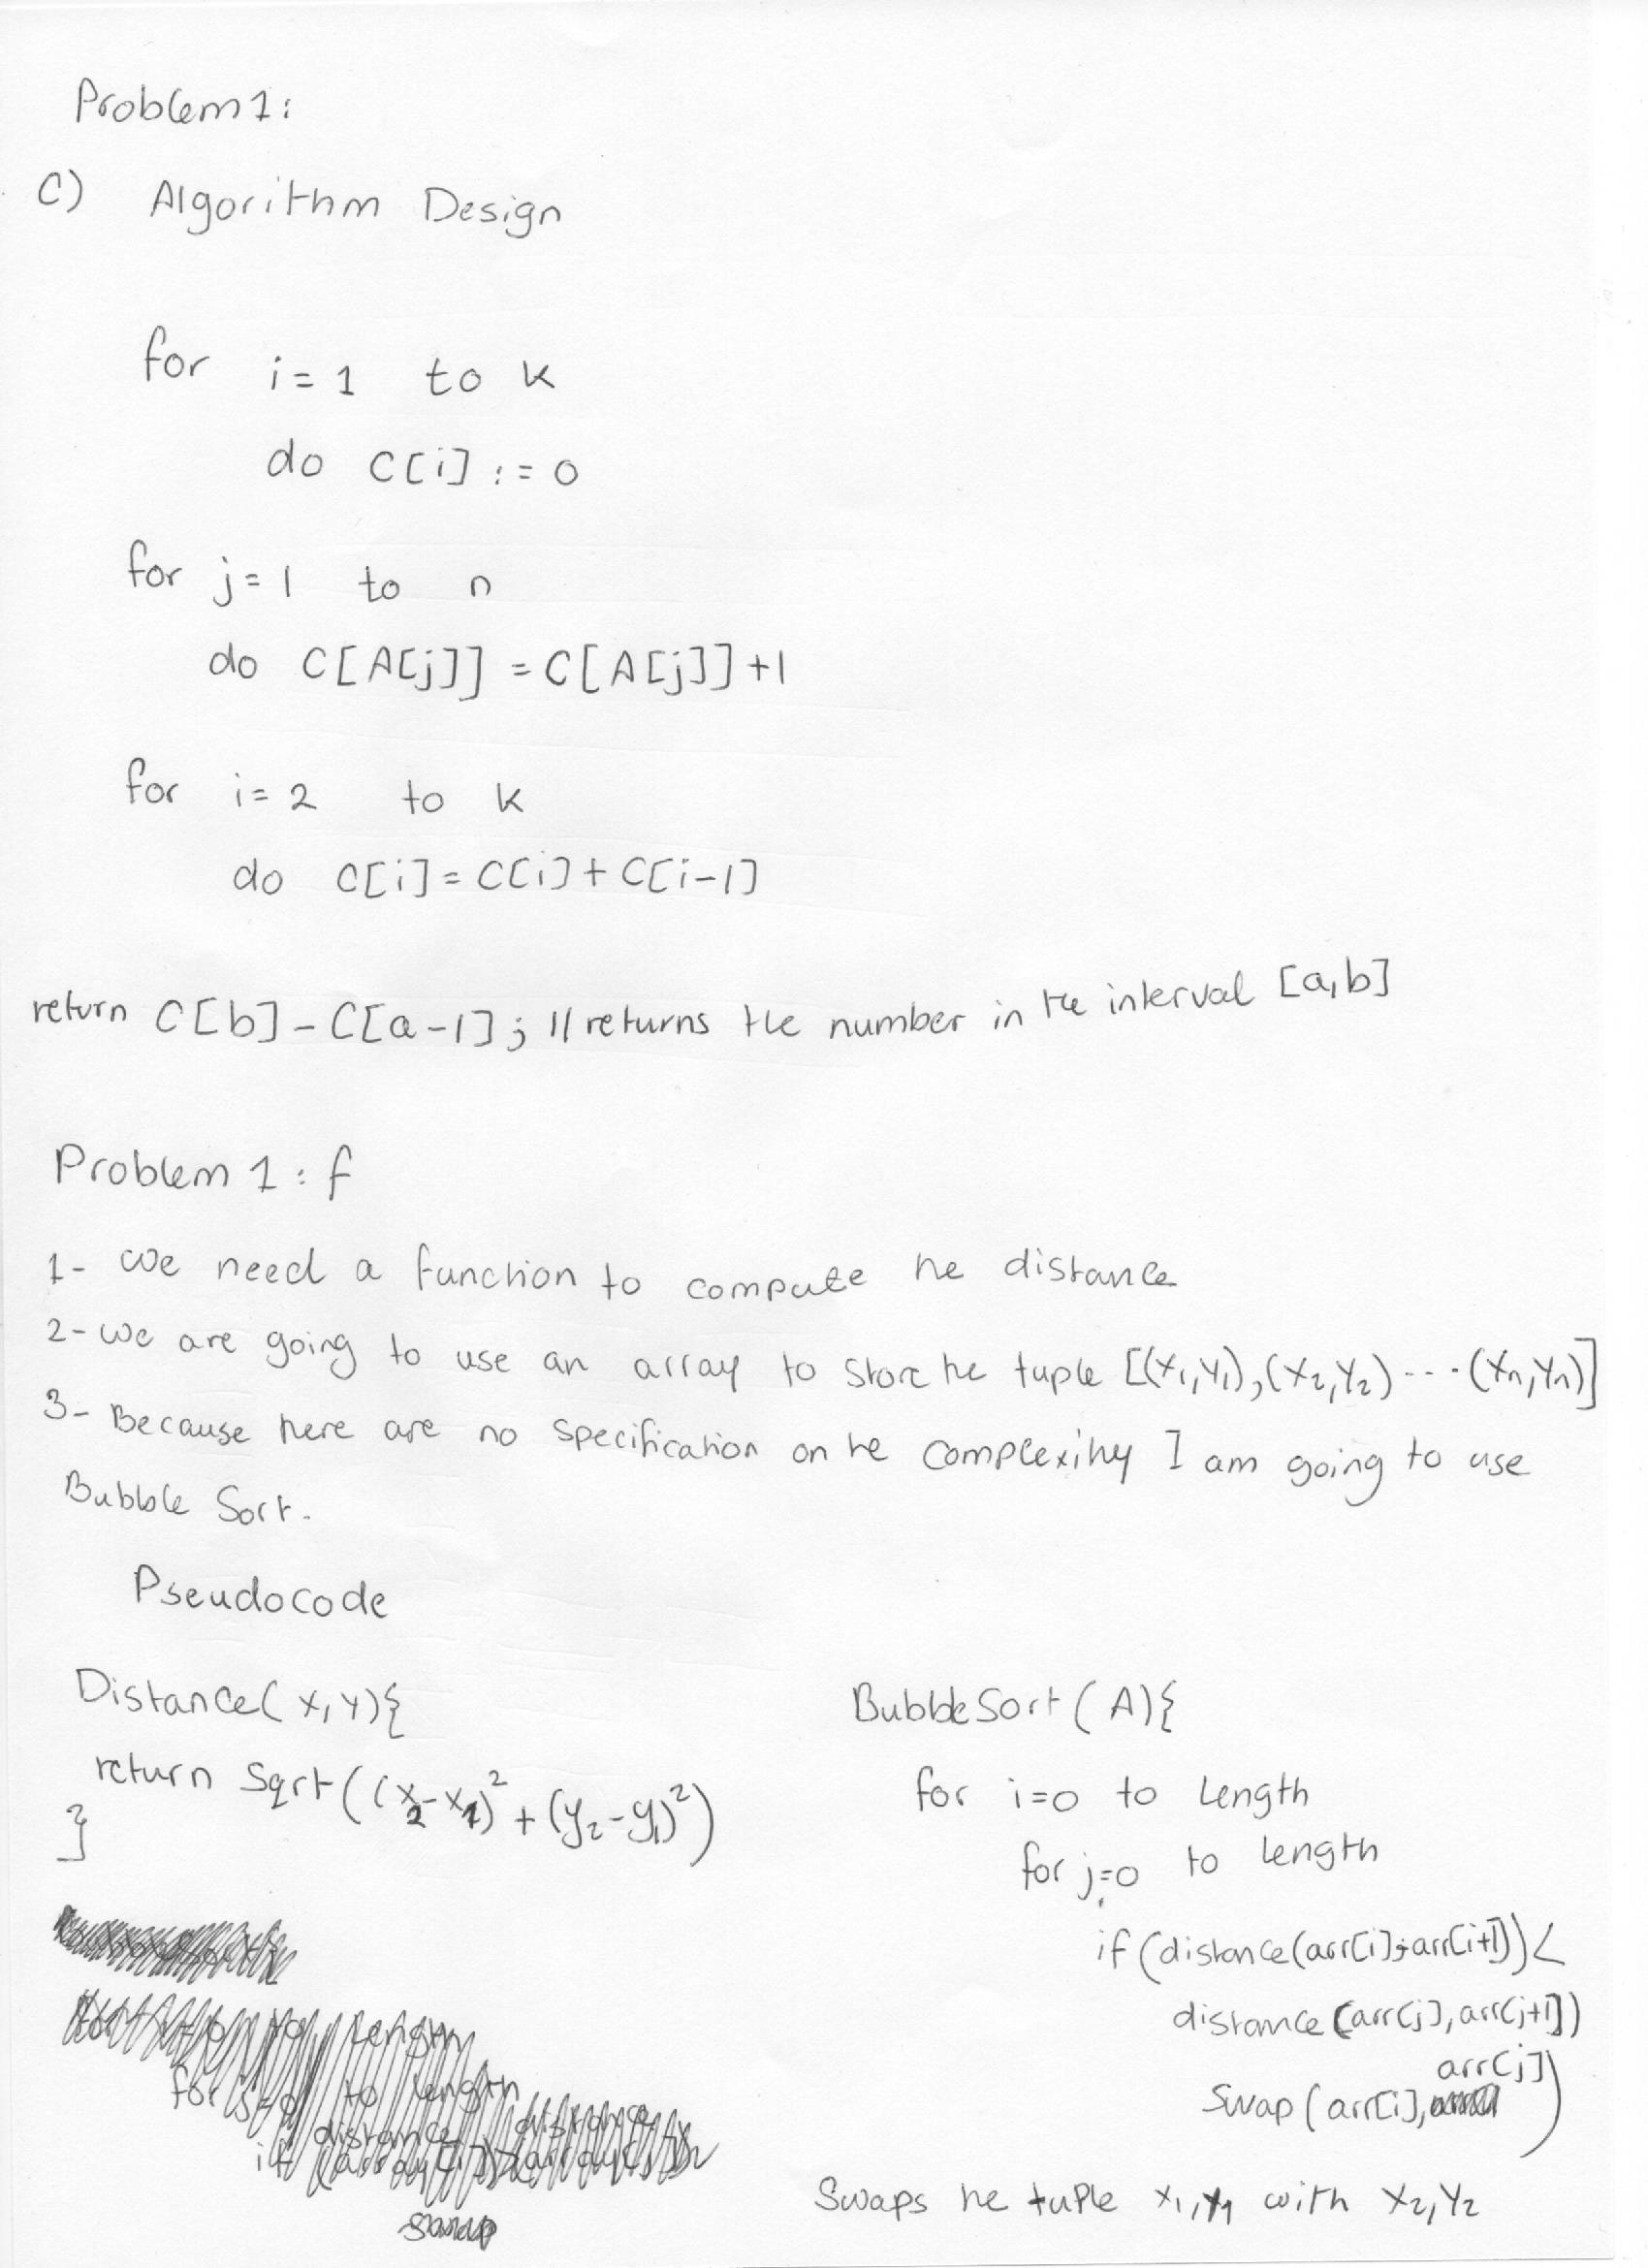 Problem 1:
C) Algorithm Design
for i=1 to k
do C[i] := 0
for j=1 to n
do C[A[j]] = C[A[j]]+1
for i=2 to k
do C[i] = C[i] + C[i-1]
return C[b] - C[a-1]; // returns the number in the interval [a,b]
Problem 1: f
1- We need a function to compute he distance
2- we are going to use an array to store he tuple [(x1,y1),(x2,y2)----(xn,yn)]
3- Because here are no specification on he complexihy I am going to use
Bubble Sort.
Pseudocode
Distance(x,y){
return Sqrt((x2-x1)² + (y2-y1)²)
}
BubbleSort(A){
for i=0 to length
for j=0 to length
if (distance(arr[i],arr[i+1])<
distance(arr[j],arr[j+1])
arr[j]
Swap(arr[i], )
Swaps he tuple x1,y1 with x2,y2
for to length
for to length
distance distance
if
swap